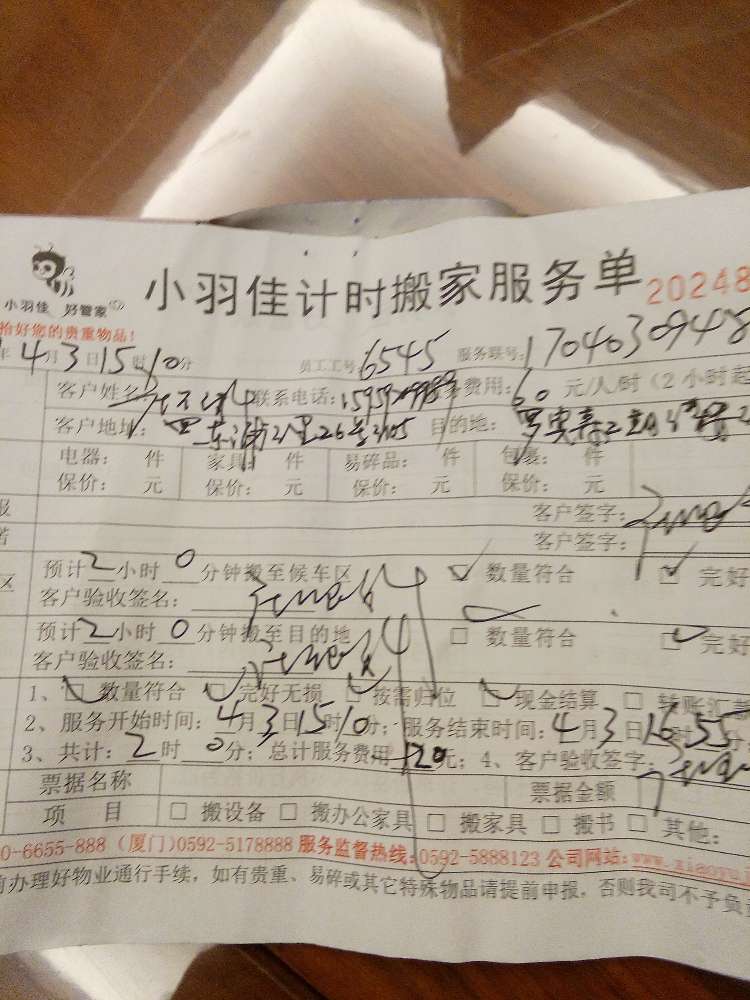 小羽佳 好管家
小羽佳计时搬家服务单 20248
拾好您的贵重物品!
年 4月3日15时10分 员工工号:6545 服务联号:17040309484
客户姓名: 联系电话: 费用:60 元/人/时(2小时起
客户地址: 目的地:
电器: 件 家具: 件 易碎品: 件 包裹: 件
保价: 元 保价: 元 保价: 元 保价: 元
客户签字:
客户签字:
预计2小时0分钟搬至候车区 数量符合 完好
客户验收签名:
预计2小时0分钟搬至目的地 数量符合 完好
客户验收签名:
1、数量符合 完好无损 按需归位 现金结算 转账汇款
2、服务开始时间:4月3日15时10分;服务结束时间:4月3日16时55分
3、共计:2时0分;总计服务费用 120元;4、客户验收签字:
票据名称 票据金额
项 目 搬设备 搬办公家具 搬家具 搬书 其他:
0-6655-888 (厦门)0592-5178888 服务监督热线:0592-5888123 公司网站:www.xiaoyu
前办理好物业通行手续,如有贵重、易碎或其它特殊物品请提前申报,否则我司不予负